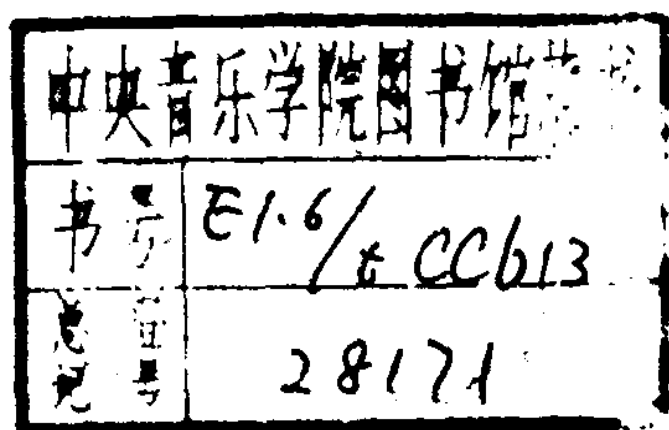 中央音乐学院图书馆藏书
书号 E1.6/t CCb13
总登号 28171